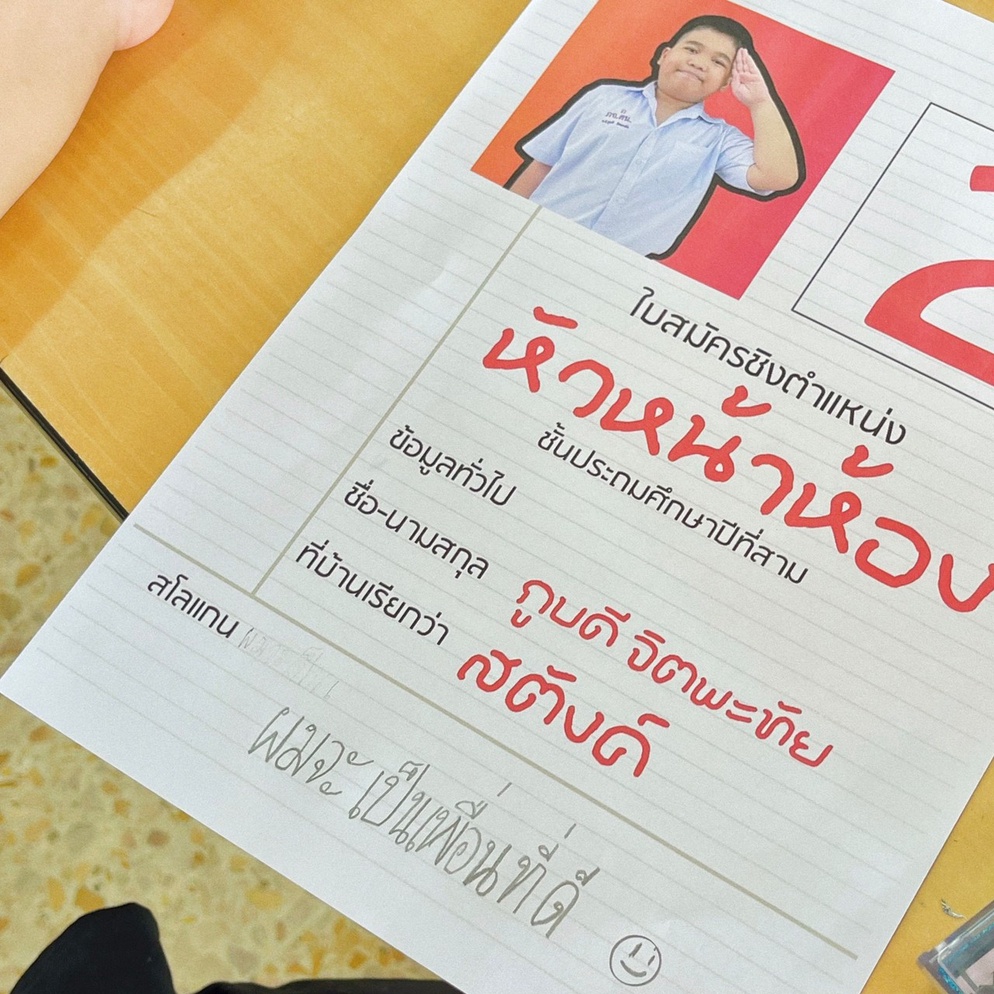 2
ใบสมัครชิงตำแหน่ง
หัวหน้าห้อง
ชั้นประถมศึกษาปีที่สาม
ข้อมูลทั่วไป
ชื่อ-นามสกุล ภูบดี จิตพะทัย
ที่บ้านเรียกว่า สตังค์
สโลแกน
ผมจะเป็นเพื่อนที่ดี